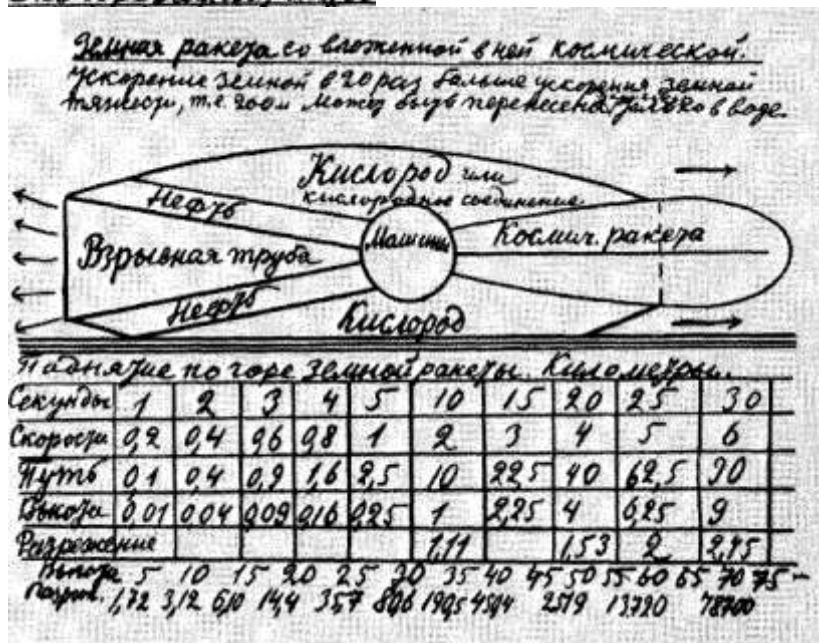 Земная ракета со вложенной в ней космической.
Ускорение земной в 20 раз больше ускорения земной
тяжести, т.е. 200 м Может быть перенесена только в воде.
Кислород или
кислородное соединение
Нефть
Взрывная труба
Машины
Космич. ракета
Нефть
Кислород
Поднятие по горе земной ракеты. Километры.
Секунды 1 2 3 4 5 10 15 20 25 30
Скорость 0,2 0,4 0,6 0,8 1 2 3 4 5 6
Путь 0,1 0,4 0,9 1,6 2,5 10 22,5 40 62,5 90
Высота 0,01 0,04 0,09 0,16 0,25 1 2,25 4 6,25 9
Разрежение 1,11 1,53 2 2,75
Высота 5 10 15 20 25 30 35 40 45 50 55 60 65 70 75
Разреж. 1,72 3,12 6,10 14,4 35,7 80,6 190,5 459,4 2519 13720 78700